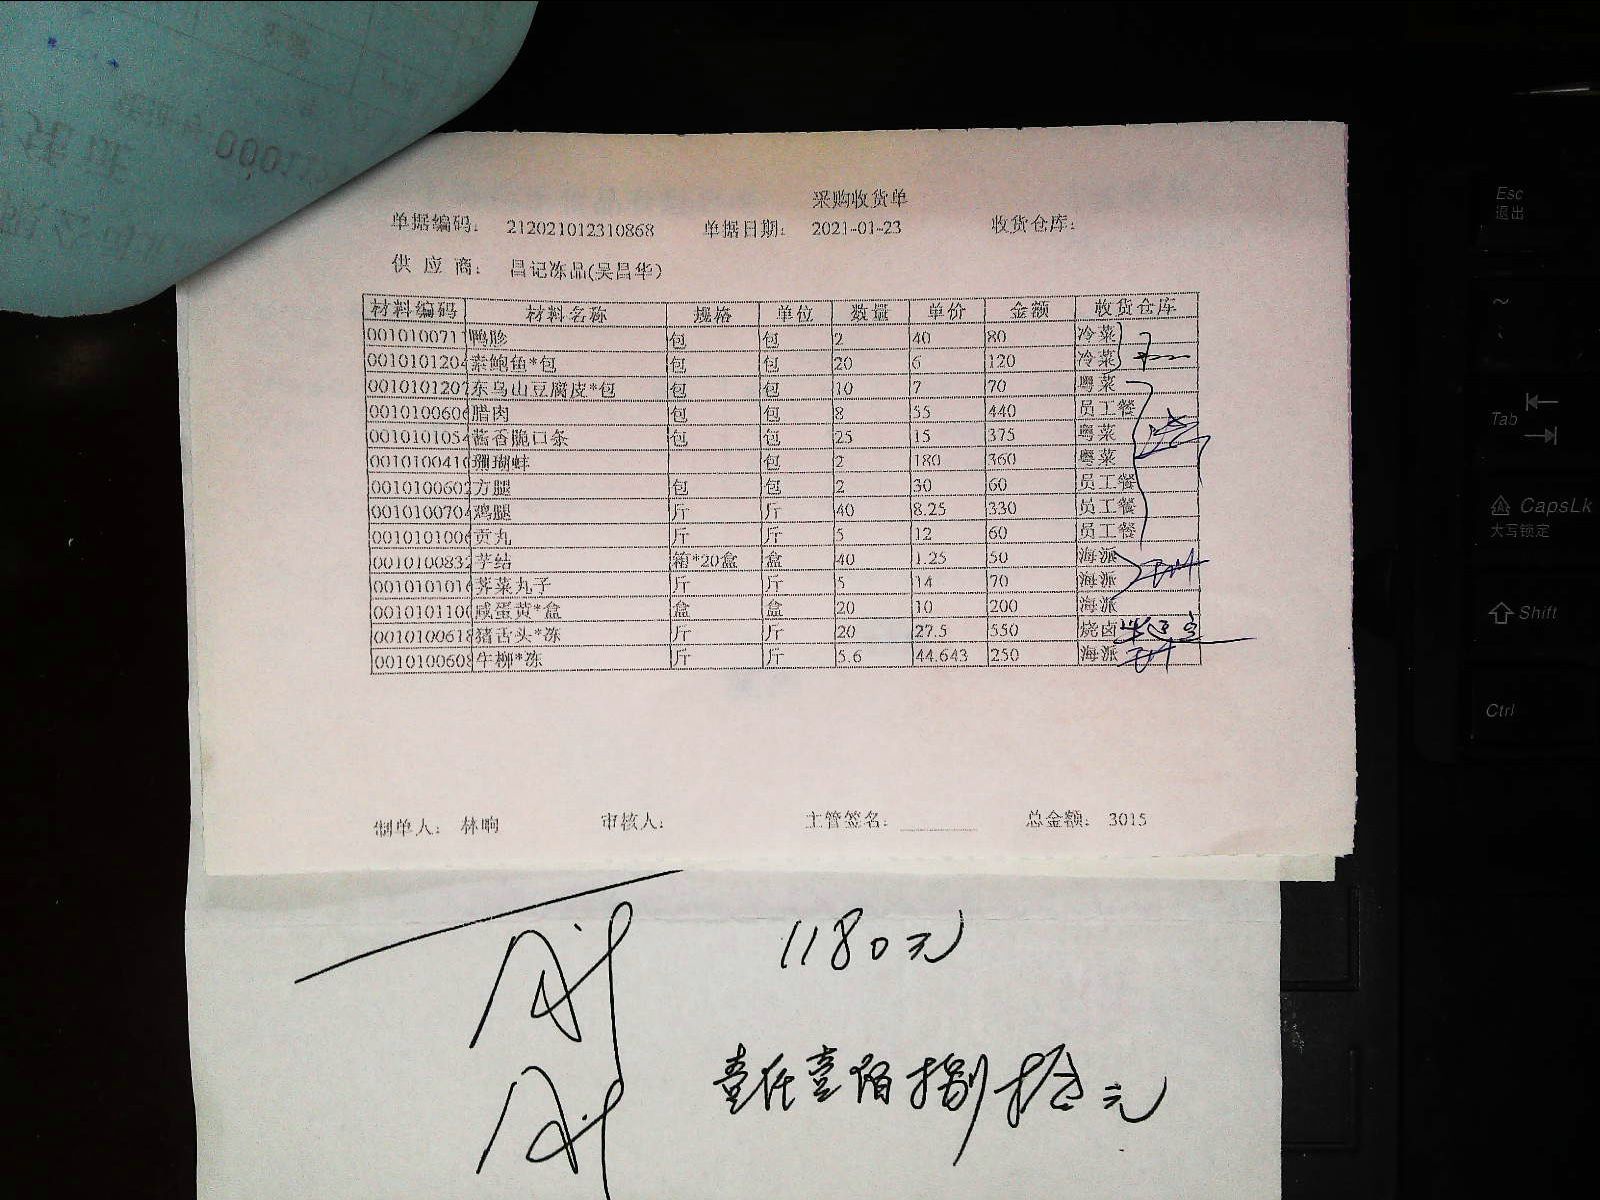 采购收货单
单据编码: 212021012310868 单据日期: 2021-01-23 收货仓库:
供 应 商: 昌记冻品(吴昌华)
材料编码 材料名称 规格 单位 数量 单价 金额 收货仓库
001010071 鸭胗 包 包 2 40 80 冷菜
001010120 素鲍鱼*包 包 包 20 6 120 冷菜
001010120 东乌山豆腐皮*包 包 包 10 7 70 粤菜
001010060 腊肉 包 包 8 55 440 员工餐
001010105 酱香脆口条 包 包 25 15 375 粤菜
001010041 珊瑚蚌 包 2 180 360 粤菜
001010060 方腿 包 包 2 30 60 员工餐
001010070 鸡腿 斤 斤 40 8.25 330 员工餐
001010100 贡丸 斤 斤 5 12 60 员工餐
001010083 芋结 箱*20盒 盒 40 1.25 50 海派
001010101 荠菜丸子 斤 斤 5 14 70 海派
001010110 咸蛋黄*盒 盒 盒 20 10 200 海派
001010061 猪舌头*冻 斤 斤 20 27.5 550 烧卤
001010060 牛柳*冻 斤 斤 5.6 44.643 250 海派
制单人: 林晌 审核人: 主管签名: 总金额: 3015
1180元
壹仟壹佰捌拾元
Esc
退出
Tab
CapsLk
大写锁定
Shift
Ctrl